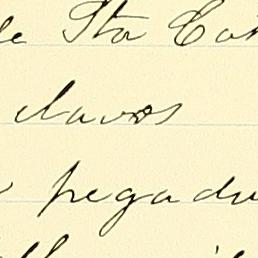 de Sta Cat
clavos
pegadu